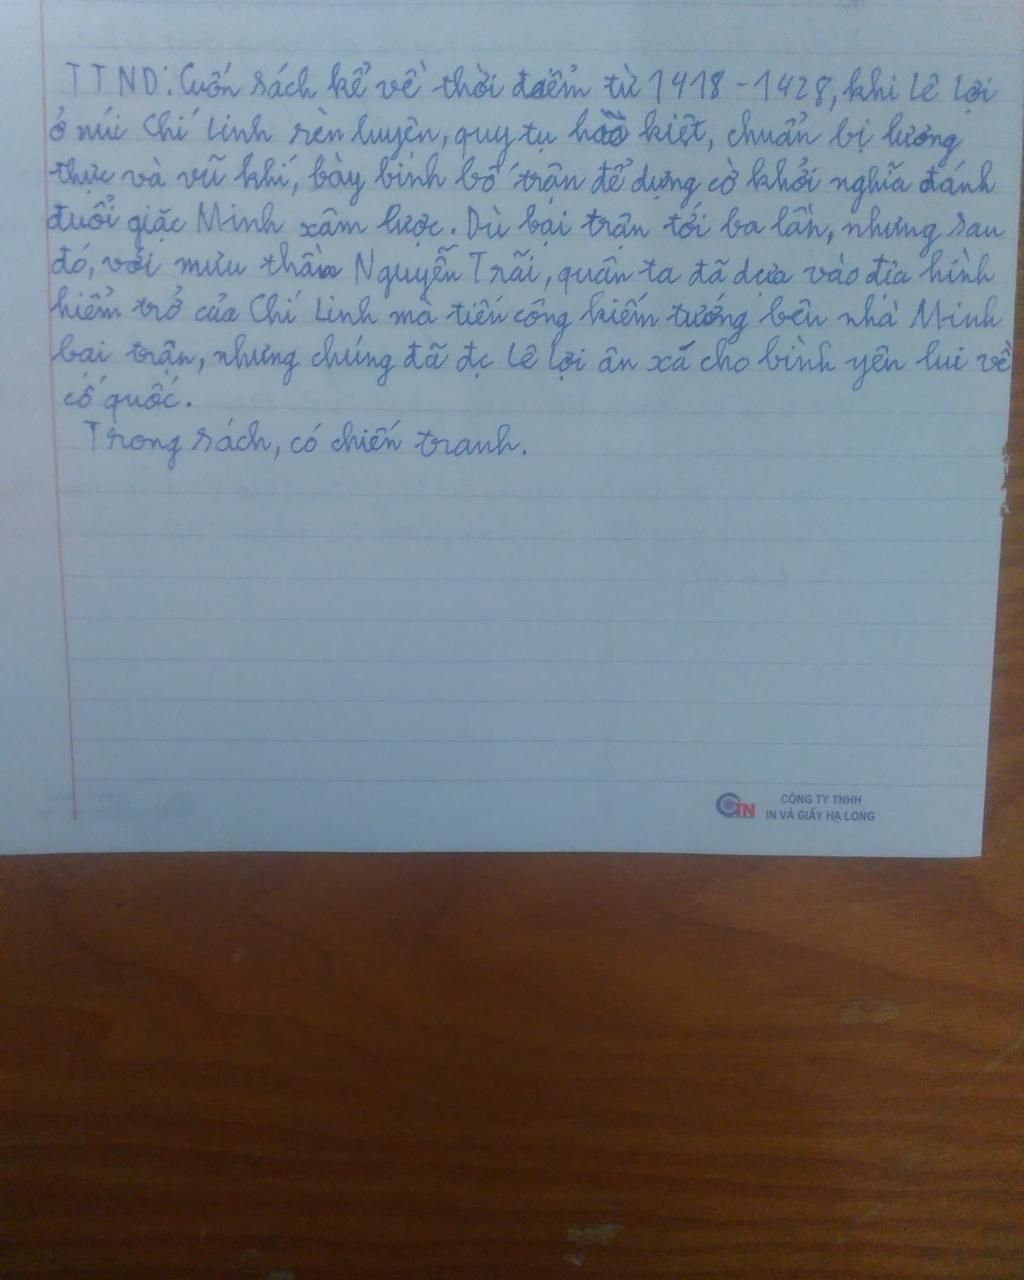 TTND: Cuốn sách kể về thời điểm từ 1418-1428, khi Lê Lợi
ở núi Chí Linh rèn luyện, quy tụ hào kiệt, chuẩn bị lương
thực và vũ khí, bày binh bố trận để dựng cờ khởi nghĩa đánh
đuổi giặc Minh xâm lược. Dù bại trận tới ba lần, nhưng sau
đó, với mưu thần Nguyễn Trãi, quân ta đã dựa vào địa hình
hiểm trở của Chí Linh mà tiến công kiếm tướng bên nhà Minh
bại trận, nhưng chúng đã đc Lê Lợi ân xá cho bình yên lui về
cố quốc.
Trong sách, có chiến tranh.
CIN CÔNG TY TNHH
IN VÀ GIẤY HẠ LONG